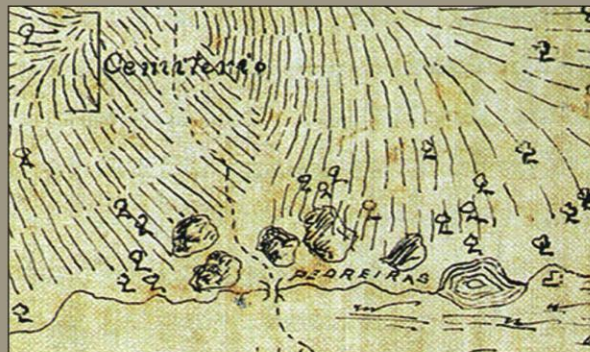 Cemiterio
PEDREIRAS